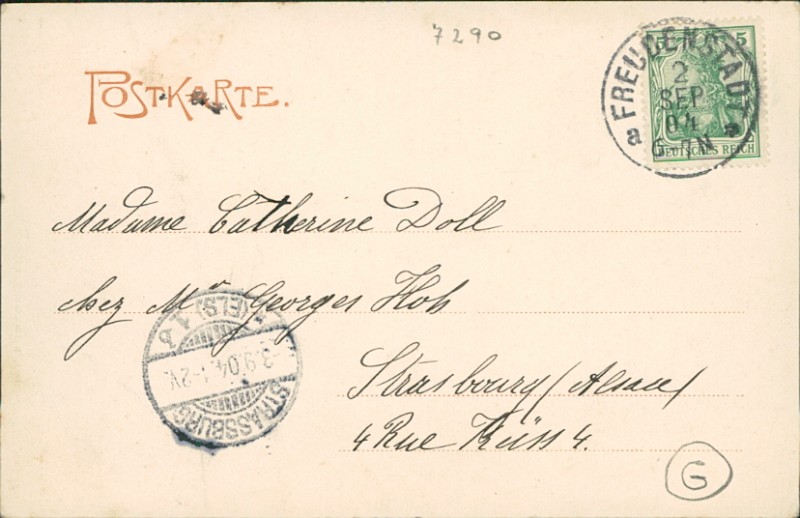 7290
POSTKARTE.
5 5
FREUDENSTADT
2
SEP
04
6-7N
a a
DEUTSCHES REICH
Madame Catherine Doll
chez Mr Georges Hoh
Strasbourg (Alsace)
4 Rue Küss 4.
STRASSBURG
(ELS) 1
b
3.9.04. 1-2V.
G